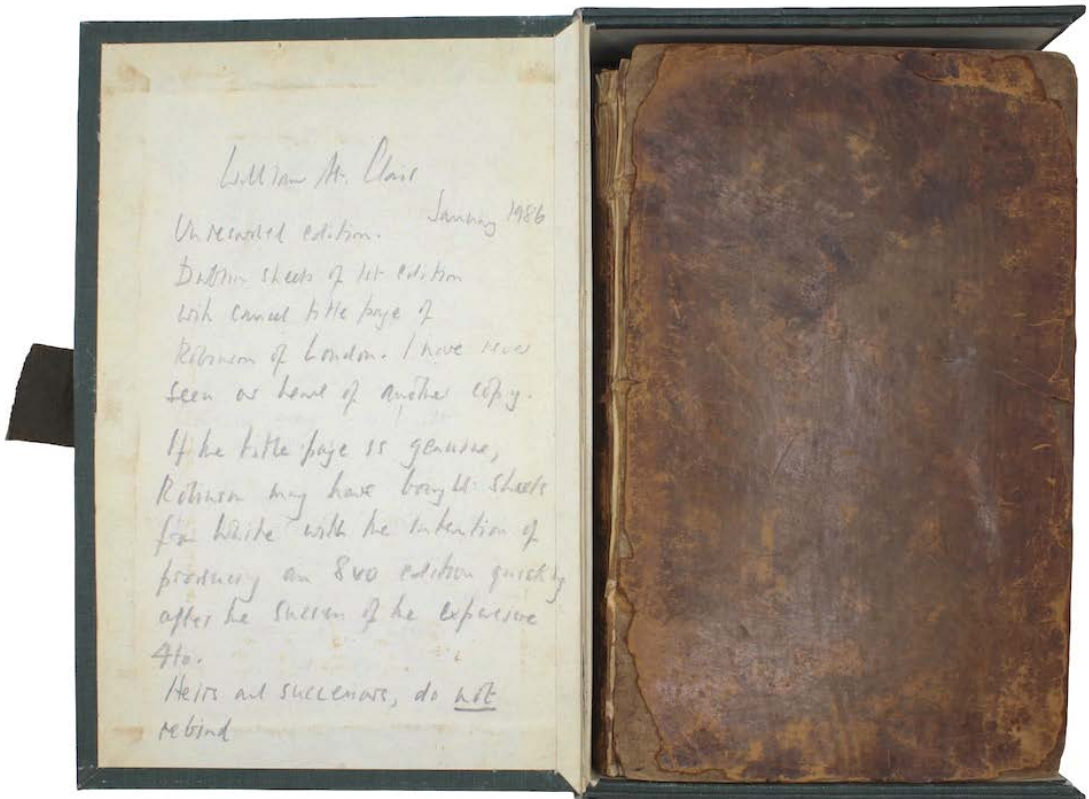 William St. Clair
January 1986
Unrecorded edition.
Dublin sheets of 1st edition
with cancel title page of
Robinson of London. I have never
seen or heard of another copy.
If the title page is genuine,
Robinson may have bought sheets
from White with the intention of
producing an 8vo edition quickly
after the success of the expensive
4to.
Heirs and successors, do not
rebind